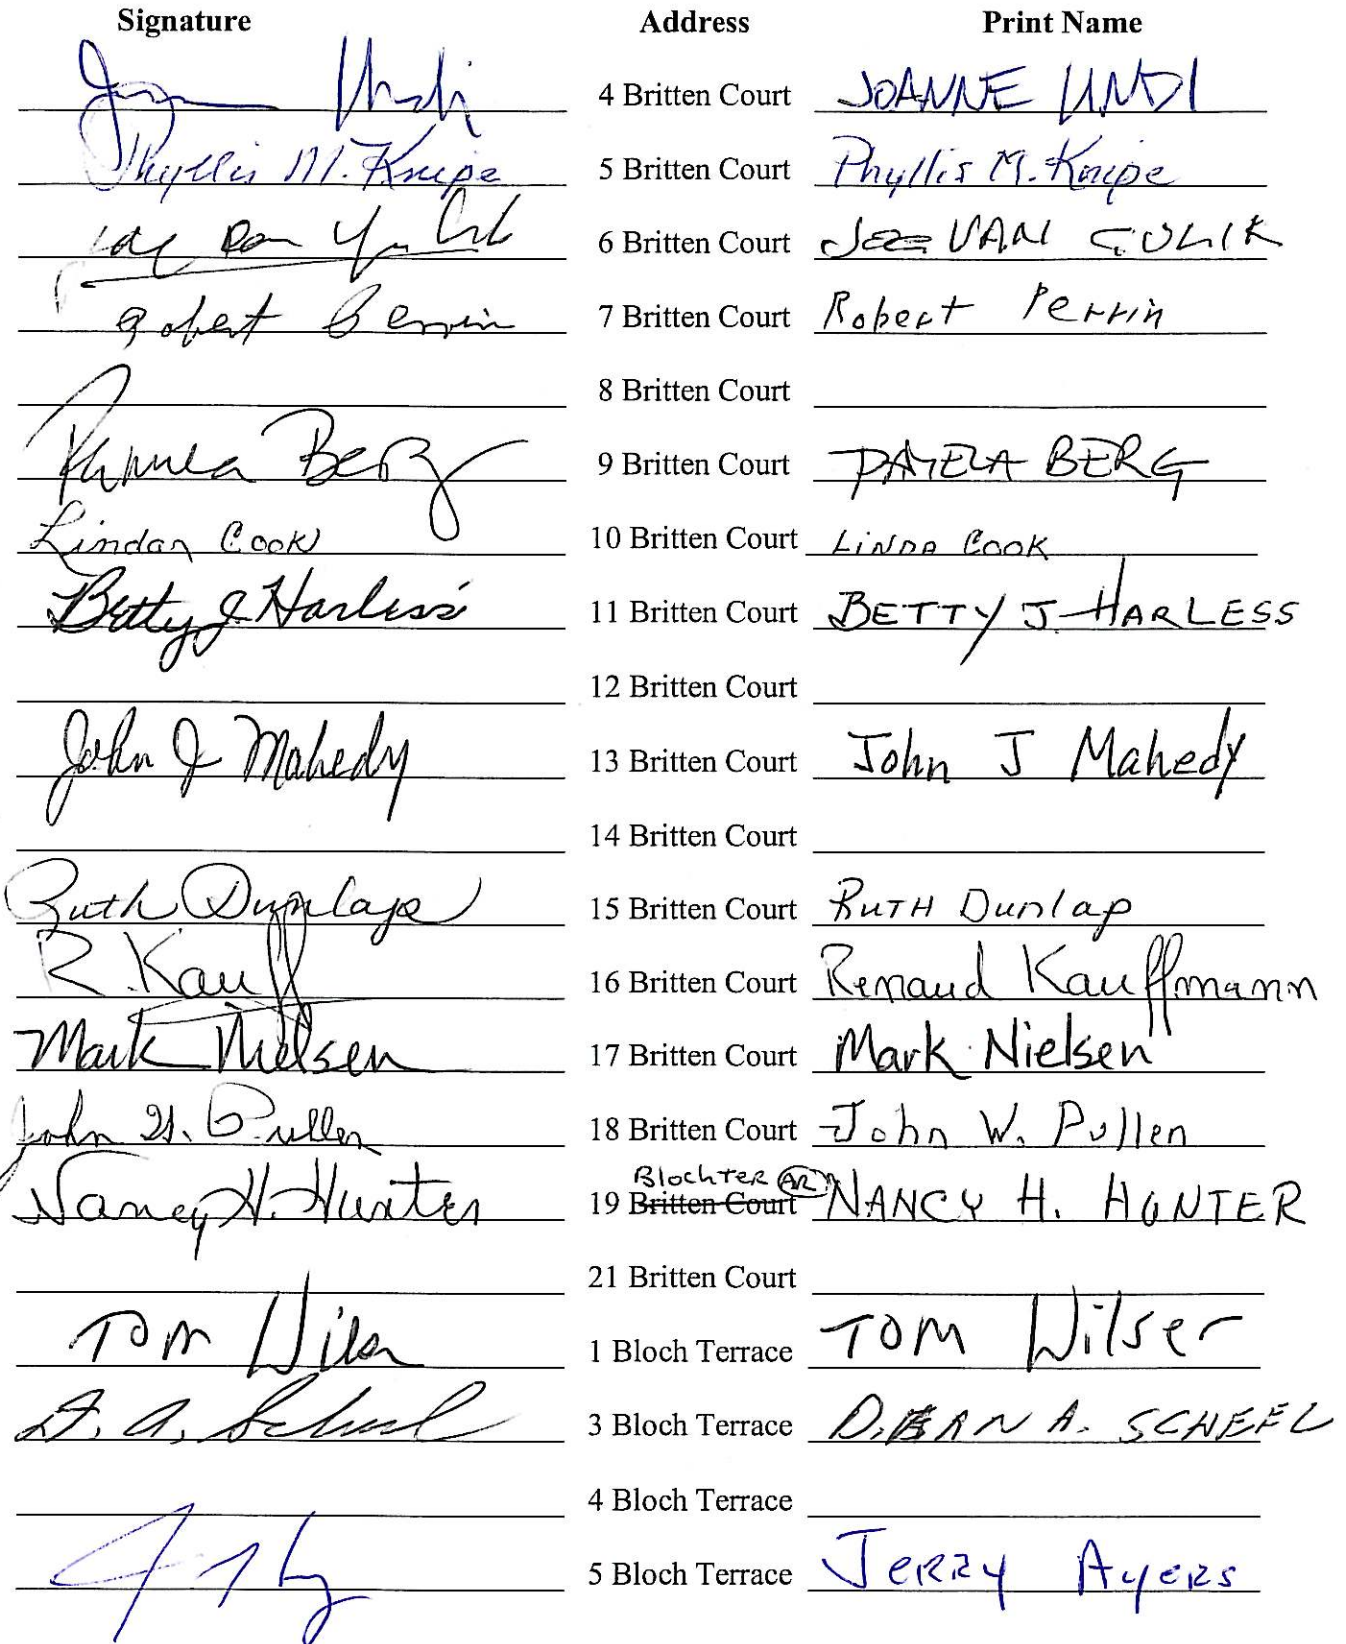 Signature Address Print Name
4 Britten Court JOANNE
Phyllis M. Knipe 5 Britten Court Phyllis M. Knipe
6 Britten Court VAN GULIK
Robert Perrin 7 Britten Court Robert Perrin
8 Britten Court
Pamela Berg 9 Britten Court PAMELA BERG
Linda Cook 10 Britten Court LINDA COOK
Betty J. Harless 11 Britten Court BETTY J HARLESS
12 Britten Court
John J Mahedy 13 Britten Court John J Mahedy
14 Britten Court
Ruth Dunlap 15 Britten Court RUTH Dunlap
R. Kauff 16 Britten Court Renaud Kauffmann
Mark Nielsen 17 Britten Court Mark Nielsen
John W. Pullen 18 Britten Court John W. Pullen
Bloch Ter
Nancy H. Hunter 19 Britten Court NANCY H. HUNTER
21 Britten Court
Tom 1 Bloch Terrace TOM Wilser
D. A. Scheel 3 Bloch Terrace A. SCHEEL
4 Bloch Terrace
5 Bloch Terrace JERRY Ayers